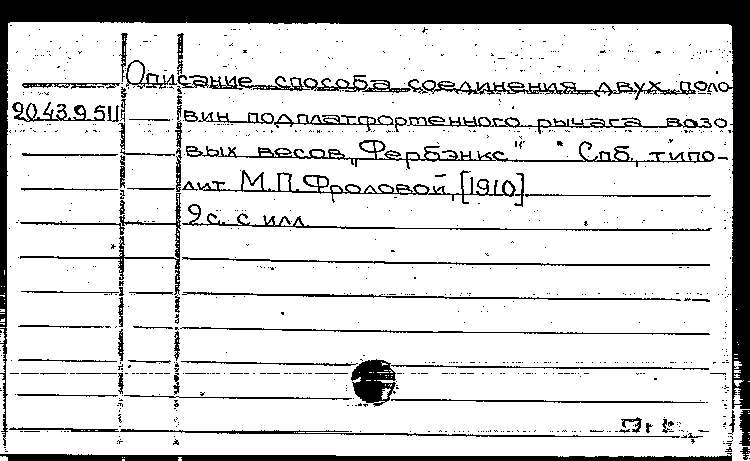 Описание способа соединения двух поло-
20.43.9.511 вин подплатфортенного рычага возо-
вых весов „Фербэнкс" Спб, типо-
лит М.П.Фроловой, [1910]
9 с. с илл.